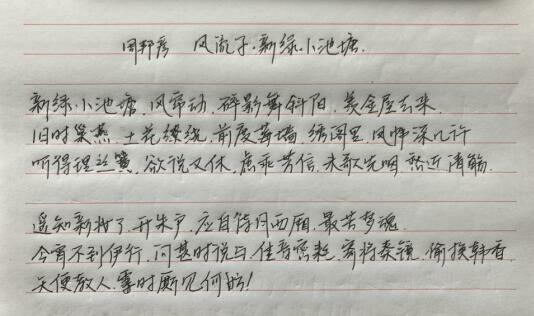 周邦彦 风流子·新绿小池塘.
新绿小池塘.风帘动.碎影舞斜阳.羡金屋去来
旧时巢燕.土花缭绕.前度莓墙.绣阁里.凤帏深几许
听得理丝簧.欲说又休.虑乖芳信.未歌先咽.愁近清觞.
遥知新妆了.开朱户.应自待月西厢.最苦梦魂
今宵不到伊行.问甚时说与.佳音密耗.寄将秦镜.偷换韩香.
天便教人.霎时厮见何妨!